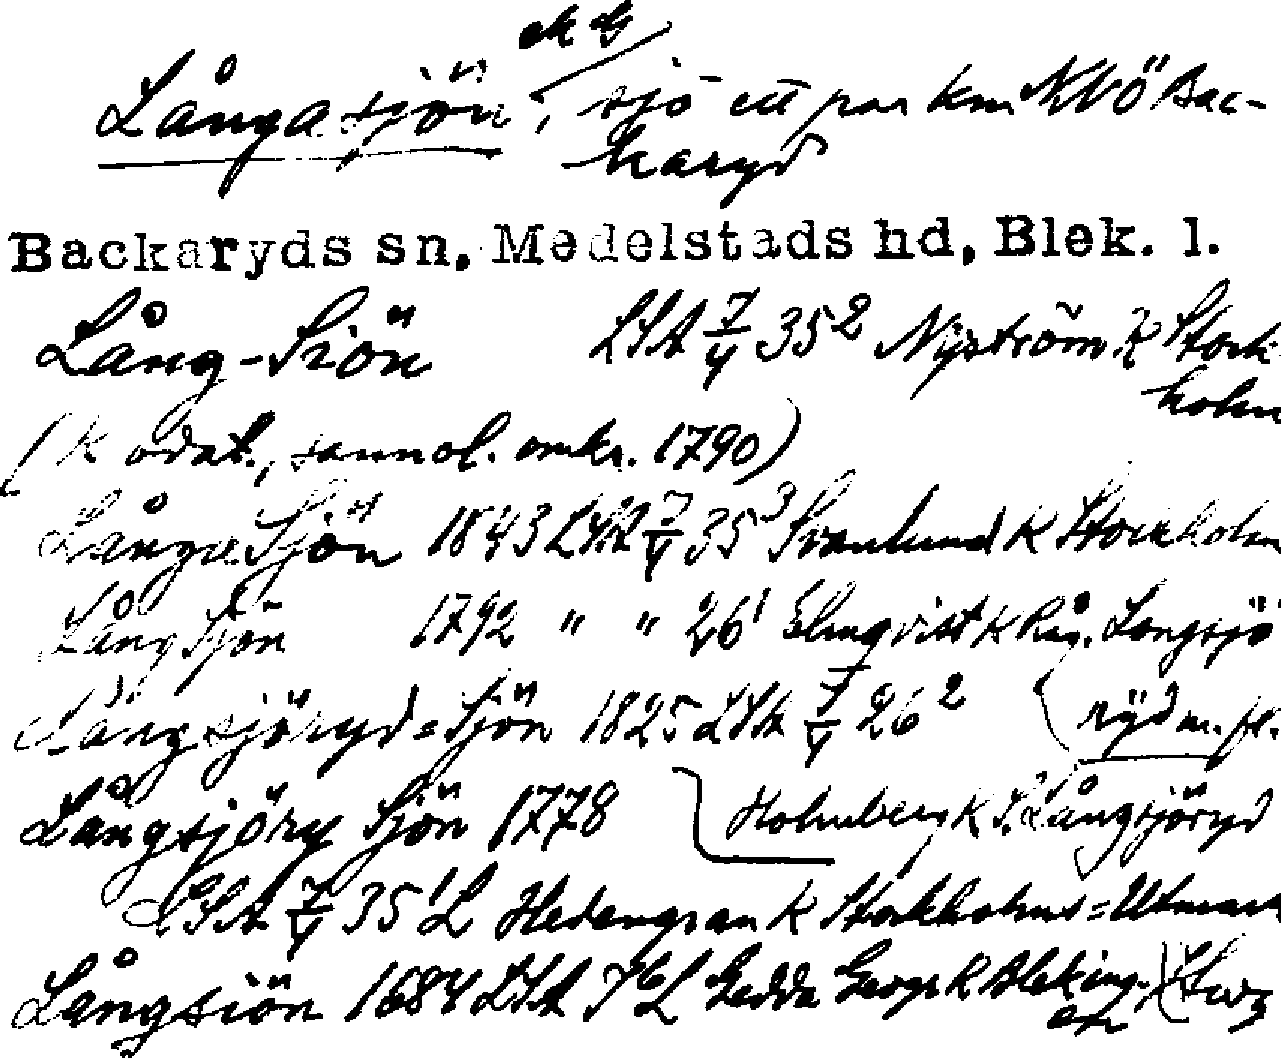 ek G
Långasjön, sjö ett par km NNÖ Bac-
karyd
Backaryds sn, Medelstads hd, Blek. l.
Lång-Siön LSA 7/4 35² Nyström k Stock-
holm
(k odat., sannol. omkr. 1790)
Långa Sjön 1843 LSA 7/4 35³ Svanlund k Stockholm
Lång Sjön 1792 " " 26¹ Elmqvist k Råg. Langsjö
Långsjöryd=Sjön 1825 LSA 7/4 26² ryd m. fl.
Långsjöry Sjön 1778 Holmberg k S. Långsjöryd
LSA 7/4 35¹ L Hedengran k Stockholms=Utmark
Långsiön 1684 LSA Gedda Geogr k Bleking-
en